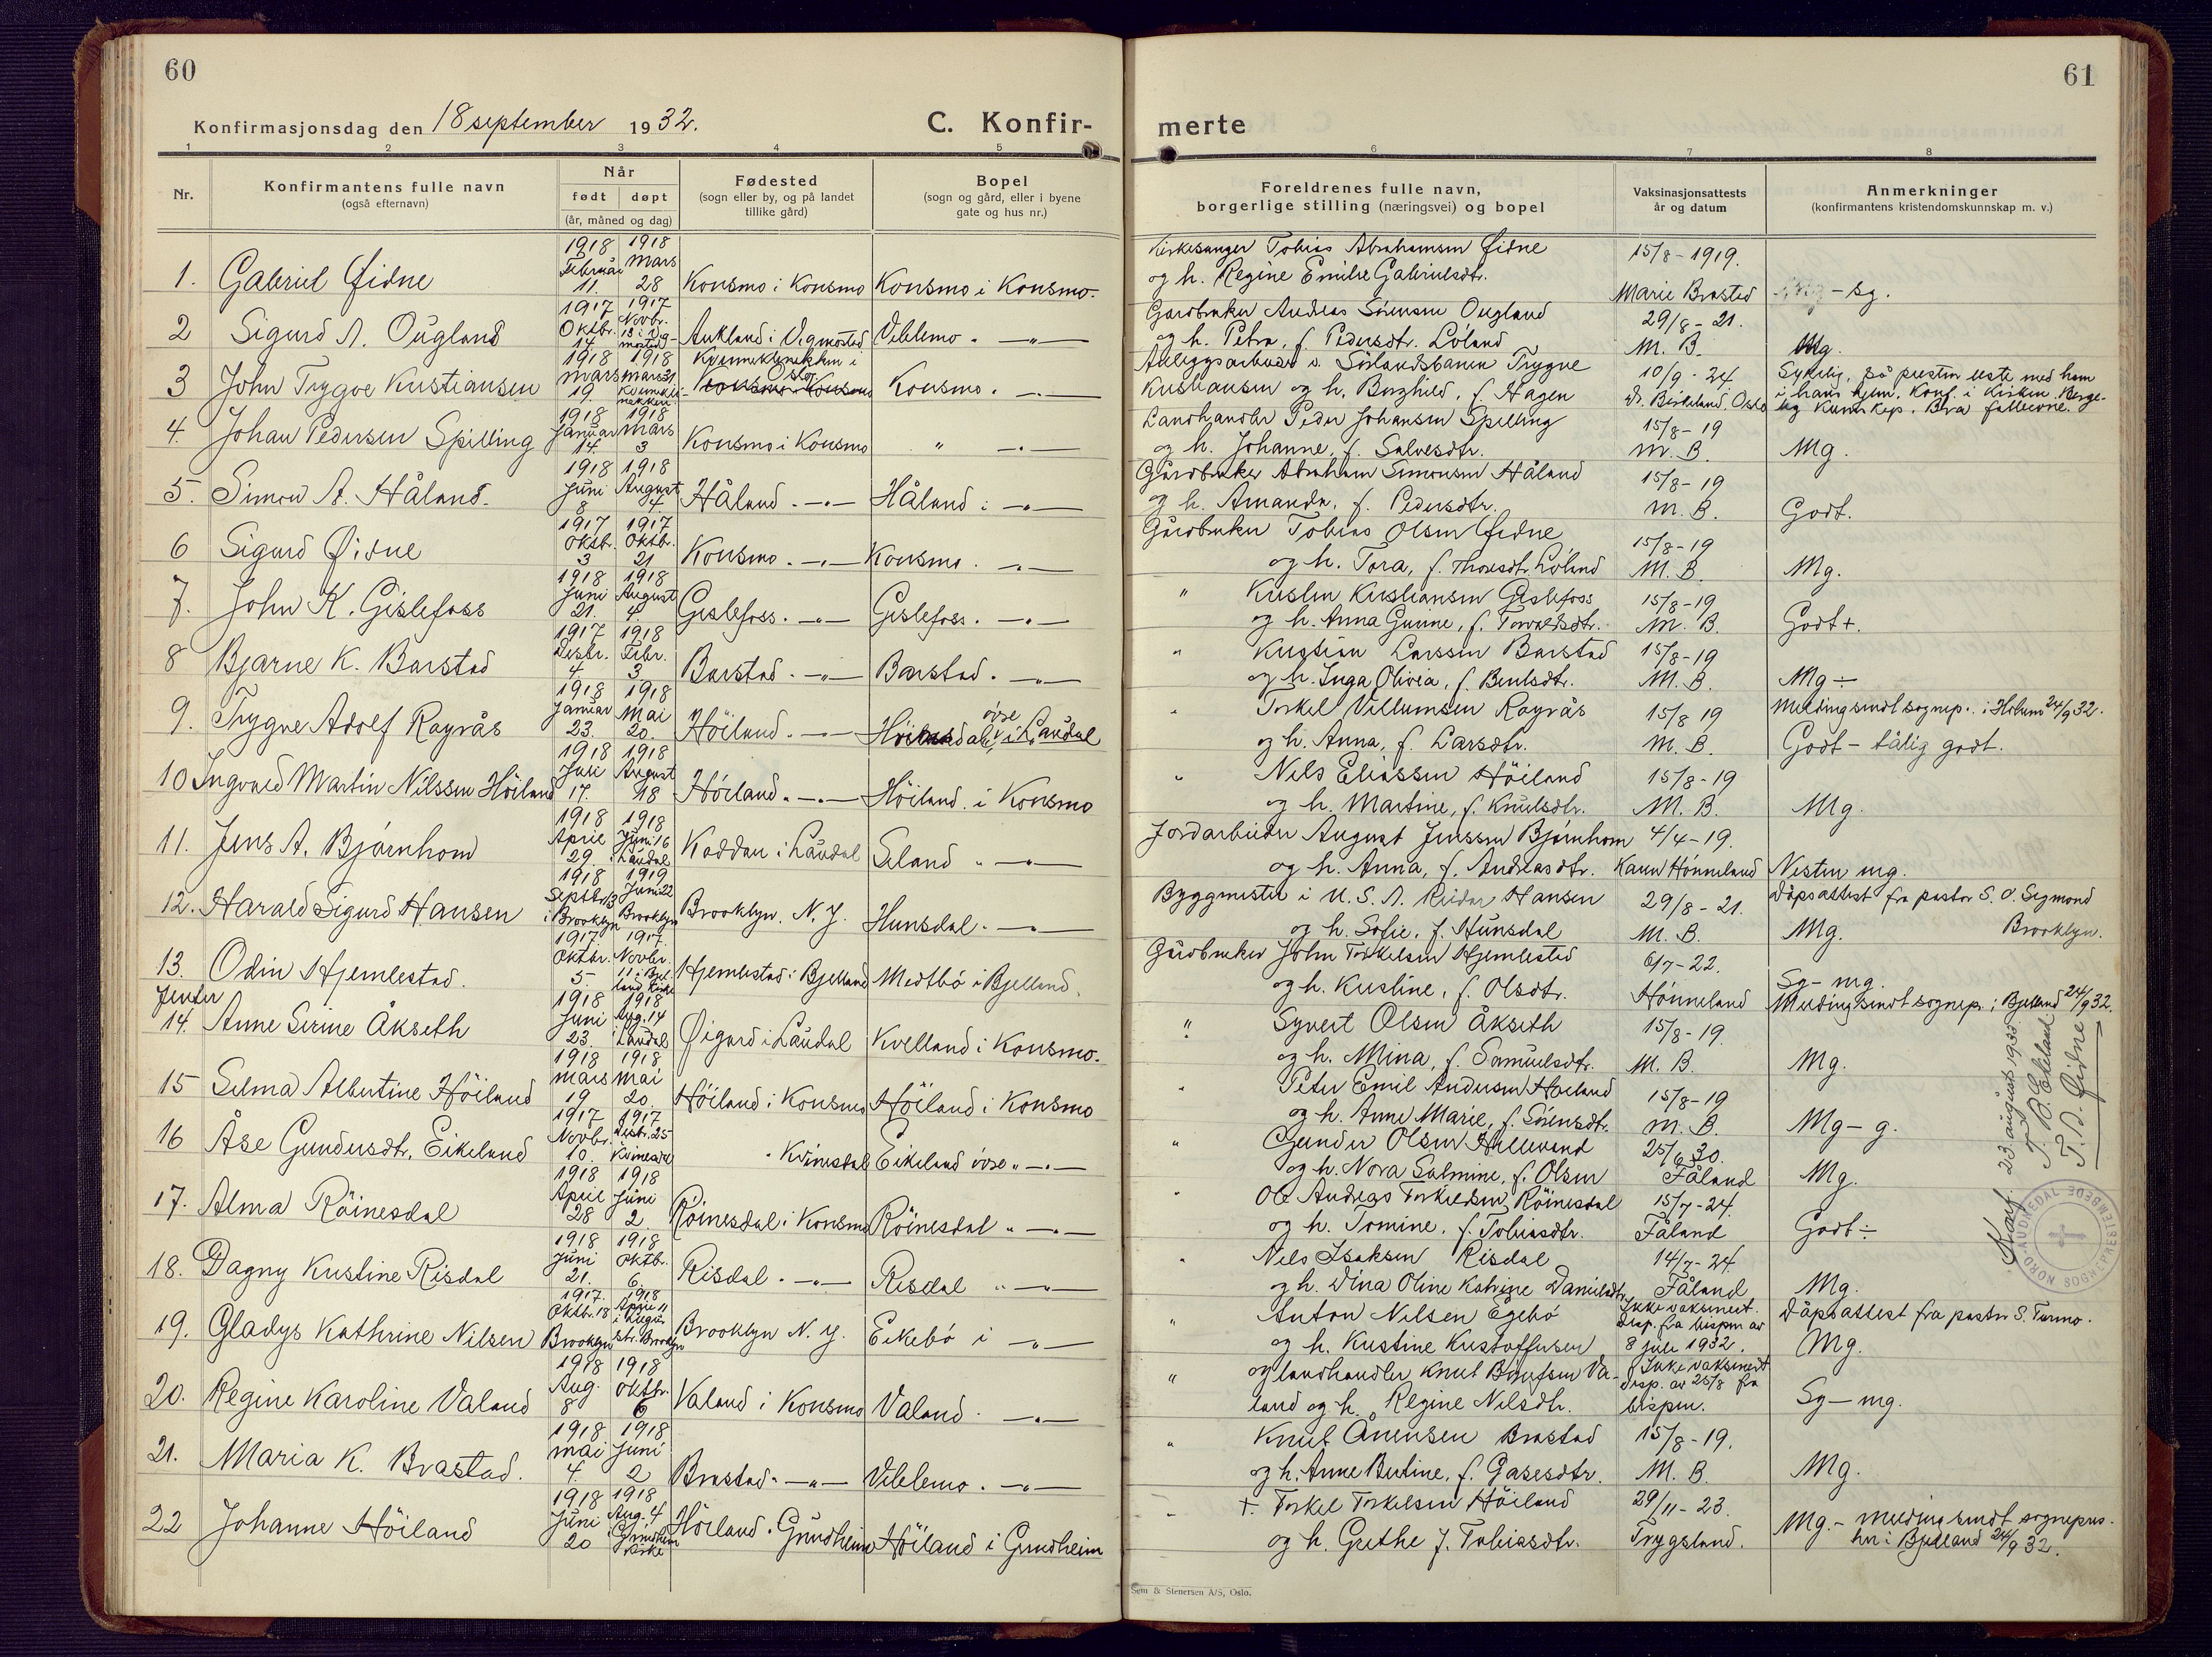 60
Konfirmasjonsdag den 18 september 1932.
C. Konfir-
1 2 3 4 5
Nr.
Konfirmantens fulle navn
(også efternavn)
Når
født døpt
(år, måned og dag)
Fødested
(sogn eller by, og på landet
tillike gård)
Bopel
(sogn og gård, eller i byene
gate og hus nr.)
1. Gabriel Øidne 1918 Februar 11. 1918 Mars 28 Konsmo i Konsmo Konsmo i Konsmo.
2 Sigurd A. Ougland 1917 Oktbr. 14. 1917 Novbr. 18 i Vigmosted Aukland i Vigmosted Viblemo. —"—
3 John Trygve Kristiansen 1918 Mars 19. 1918 Mars 31 Kvinneklinekken Kvinneklinekken i Oslo Konsmo i Konsmo Konsmo. —"—
4. Johan Pedersen Spilling 1918 Januar 14. 1918 Mars 3 Konsmo i Konsmo " —"—
5. Simon A. Håland. 1918 Juni 8 1918 August 4 Håland. —"— Håland i —"—
6 Sigurd Øidne 1917 Oktb. 3 1917 Oktb. 21 Konsmo. —"— Konsmo. —"—
7. John K. Gislefoss 1918 Juni 21. 1918 August 4. Gislefoss. —"— Gislefoss. —"—
8 Bjarne K. Barstad 1917 Desbr. 4. 1918 Febr. 3 Barstad. —"— Barstad. —"—
9. Trygve Adolf Røyrås 1918 Januar 23. 1918 Mai 20. Höiland. —"— øvre i Laudal
10 Ingvald Martin Nilssen Höiland 1918 Juli 17. 1918 August 18 Höiland. —"— Höiland i Konsmo
11. Jens A. Bjørnhom 1918 April 29. 1918 Juni 16 i Laudal Koddan i Laudal Seland " —"—
12. Harald Sigurd Hansen 1918 Septbr. 13 i Brooklyn 1919 Juni 22 Brooklyn Brooklyn. N. Y. Hunsdal. —"—
13. Odin Hjemlestad. 1917. Oktbr. 5. 1917. Novbr. 11 i Bjelland kirke Hjemlestad i Bjelland Midtbö i Bjelland.
Jenter
14. Anne Serine Åkseth 1918 Juni 23. 1918 Aug. 14 i Laudal Øigard i Laudal Kvelland i Konsmo.
15 Selma Albertine Höiland 1918 Mars 19 1918 Mai 20. Höiland i Konsmo Höiland i Konsmo
16 Åse Gundersdtr. Eikeland 1917 Novbr. 10. 1917 Desbr. 25 Kvinesdal " Kvinesdal Eikeland øvre " —"—
17. Alma Röinesdal 1918 April 28 1918 Juni 2. Röinesdal i Konsmo Röinesdal " —"—
18. Dagny Kristine Risdal 1918 Juni 21. 1918 Oktbr. 6. Risdal. —"— Risdal " —"—
19. Gladys Kathrine Nilsen 1917. Oktbr. 18 Brooklyn 1918 April 11 Brooklyn Brooklyn N. Y. Eikebö i —"—
20. Regine Karoline Valand 1918 Aug. 8 1918 Oktbr. 6 Valand i Konsmo Valand. —"—
21. Maria K. Brastad. 1918 Mai 4. 1918 Juni 2 Brastad. —"— Viblemo. —"—
22 Johanne Höiland 1918 Juni 20 1918 Aug. 4 i Grindheim kirke Höiland. Grindheim Höiland i Grindheim
61
merte
6 7 8
Foreldrenes fulle navn,
borgerlige stilling (næringsvei) og bopel
Vaksinasjonsattests
år og datum
Anmerkninger
(konfirmantens kristendomskunnskap m. v.)
Kirkesanger Tobias Abrahamsen Øidne 15/8-1919.
og h. Regine Emilie Gabrielsdtr. Marie Brasted – Sg.
Gardbruker Andreas Sörensen Ougland 29/8-21.
og h. Petra, f. Pedersdtr. Löland M. B. Mg.
Anleggsarbeider v. Sörlandsbanen Trygve 10/9-24 Sykelig, så presten leste med ham
Kristiansen og h. Borghild, f. Hagen Dr. Birkeland, Oslo i hans hjem. Konf. i Kirken. Berge-
lig Kunnskap. Bra fatteevne.
Landhandler Peder Johansen Spilling 15/8-19
og h. Johanne, f. Salvesdtr. M. B. Mg.
Gårdbruker Abraham Simonsen Håland 15/8-19
og h. Amanda, f. Pedersdtr. M. B. Godt.
Gårdbruker Tobias Olsen Øidne 15/8-19
og h. Tora, f. Thoresdtr. Löland M. B. Mg.
" Kristen Kristiansen Gislefoss 15/8-19
og h. Anna Gurine, f. Torvaldsdtr. M. B. Godt+.
" Kristian Larssen Barstad 15/8-19
og h. Inga Olivia, f. Bentsdtr. M. B. Mg ÷
" Torkel Villumsen Røyrås 15/8 19 Melding sendt sognep. i Holum 24/9 32.
og h. Anna, f. Larsdtr. M. B. Godt – tålig godt.
" Nils Eliassen Höiland 15/8-19
og h. Martine, f. Knutsdtr. M. B. Mg.
Jordarbeider August Jenssen Bjørnhom 4/4-19.
og h. Anna, f. Andreasdtr. Karen Hönneland Nesten mg.
Byggmester i U. S. A. Reidar Hansen 29/8-21. Dåpsattest fra pastor S. O. Sigmond
og h. Sofie, f. Hunsdal M. B. Mg. Brooklyn.
Gårdbruker John Torkelsen Hjemlestad 6/7-22.
og h. Kristine, f. Olsdtr. Hönneland Sg – mg.
Melding sendt sognep. i Bjelland 24/9 32.
" Syvert Olsen Åkseth 15/8-19.
og h. Mina, f. Samuelsdtr. M. B. Mg.
" Peter Emil Andersen Höiland 15/8-19
og h. Anne Marie, f. Sörensdtr. M. B. Mg – g.
" Gunder Olsen Hellevand 25/6 30.
og h. Nora Salmine, f. Olsen Fåland Mg.
" Ole Andreas Torkildsen Röinesdal 15/7-24.
og h. Tomine, f. Tobiasdtr. Fåland Godt ÷
" Nils Isaksen Risdal 14/7-24.
og h. Dina Oline Katrine Danielsdtr. Fåland Mg.
" Anton Nilsen Egebö Ikke vaksinert. Dåpsattest fra pastor S. Turmo.
Disp. fra bispen av
og h. Kristine Kristoffersen 8 juli 1932. Mg.
" og landhandler Knut Berntsen Va- Ikke vaksinert
Disp. av 25/8 fra
land og h. Regine Nilsdtr. bispen. Sg – mg.
" Knut Ånensen Brastad 15/8-19.
og h. Anne Bertine, f. Gasesdtr. M. B. Mg.
" +. Torkel Torkelsen Höiland 29/11-23.
og h. Grethe f. Tobiasdtr. Trygsland. Mg. – melding sendt sognepres-
ten i Bjelland 24/9 32.
23 august 193
T. B. Eikeland
T. A. Øidne
NORD-AUDNEDAL
Sem & Stenersen A/S, Oslo.